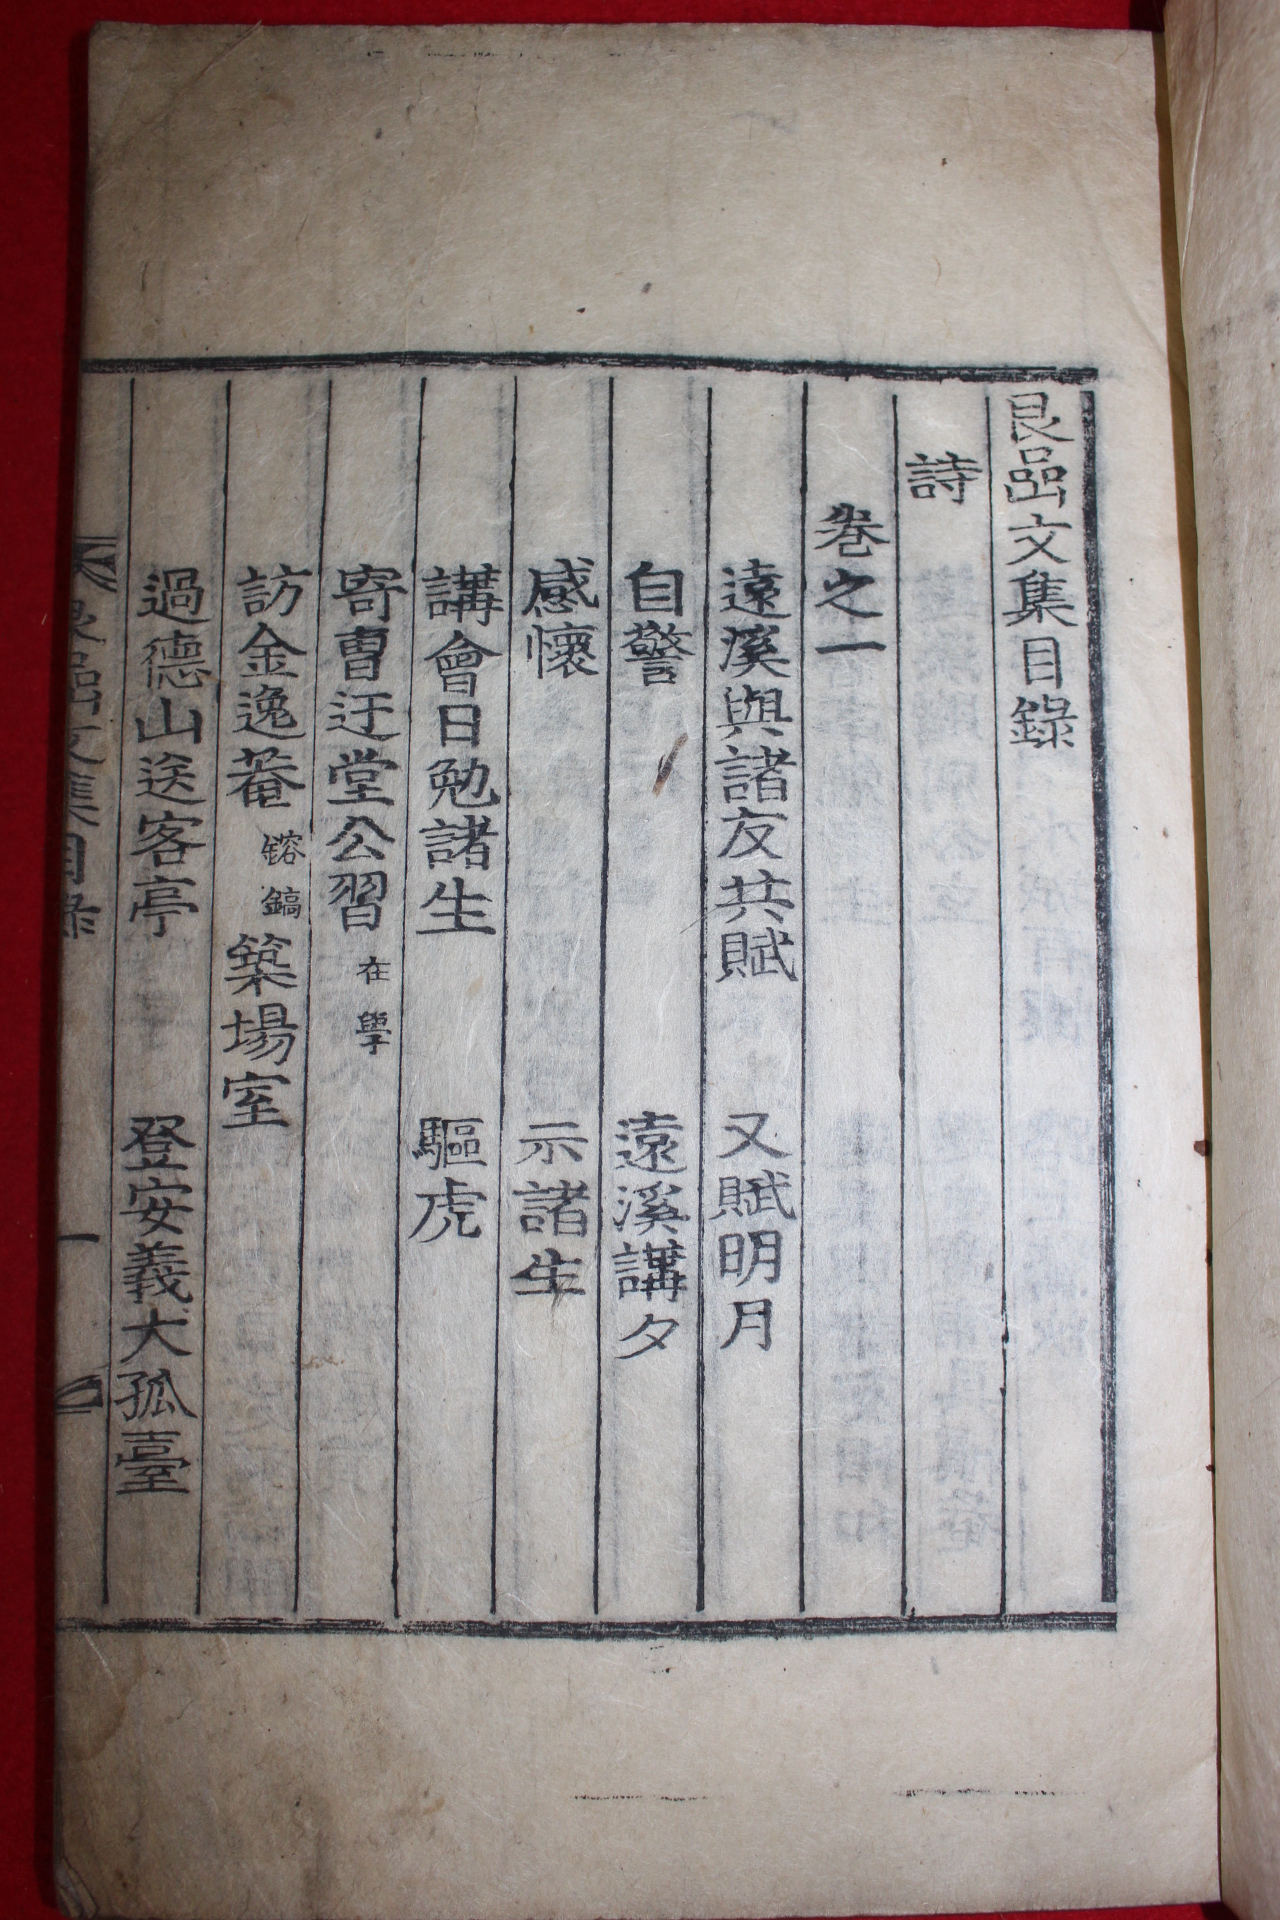 艮嵒文集目錄
詩
卷之一
遠溪與諸友共賦 又賦明月
自警 遠溪講夕
感懷 示諸生
講會日勉諸生 驅虎
寄曺迂堂公習 在學
訪金逸菴 鎔鎬 築場室
過德山送客亭 登安義犬孤臺
艮嵒文集目錄 一